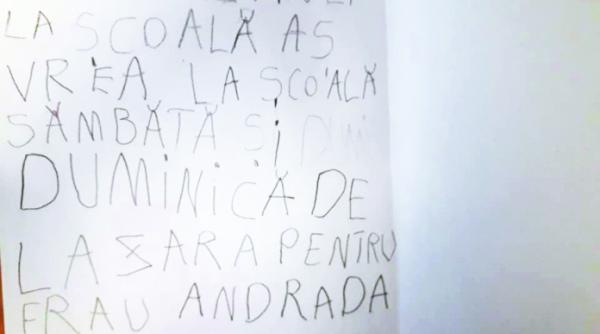 LA SCOALĂ AS
VREA LA ȘCOALĂ
SĂMBĂTĂ ȘI DUMI
DUMINICĂ DE
LA SARA PENTRU
FRAU ANDRADA